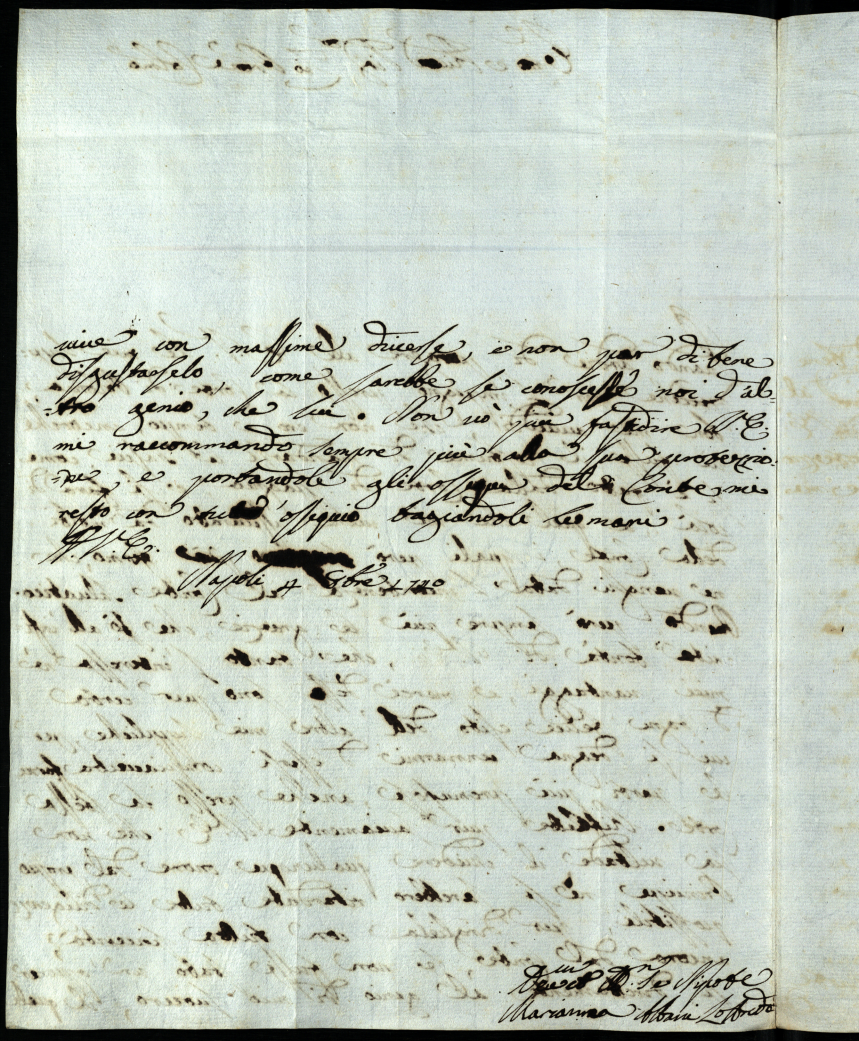 uiue con massime diuerse, e non par di bene
disgustarselo, come sarebbe se conoscesse noi d'al=
=tro genio, che lui. Non uò più fastidire V. E.
mi raccommando sempre più alla sua protezio=
=ne, e portandole gli ossequi del Conte mi
resto con tutto ossequio bagiandoli le mani
D. V. E.
Napoli 4 8bre 1740
Nipote
Marianna Albani Loffredo